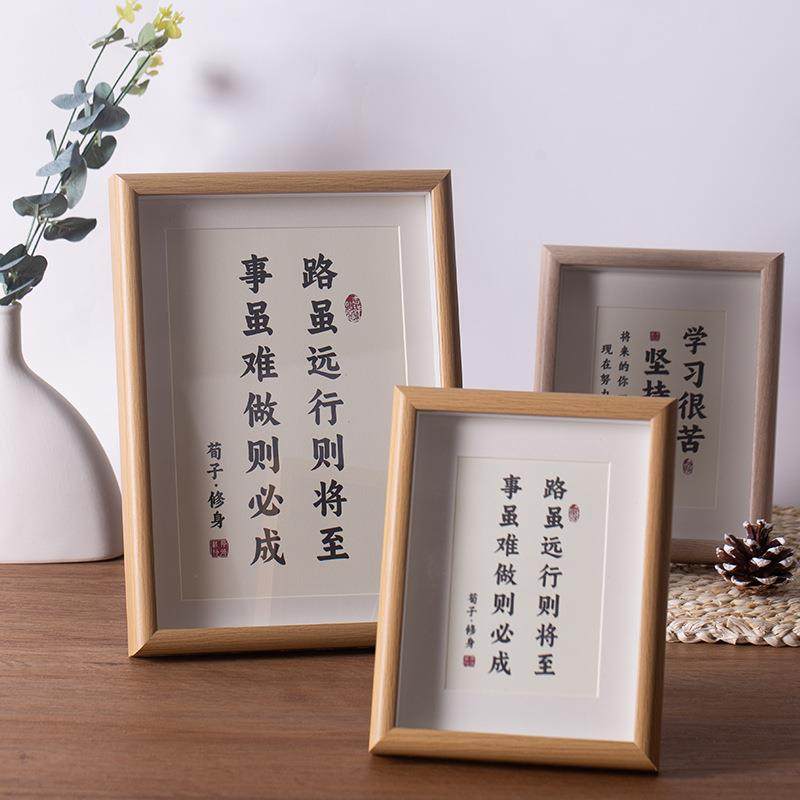 路虽远行则将至
事虽难做则必成
荀子·修身
路虽远行则将至
事虽难做则必成
荀子·修身
学习很苦
坚持
将来的你
现在努